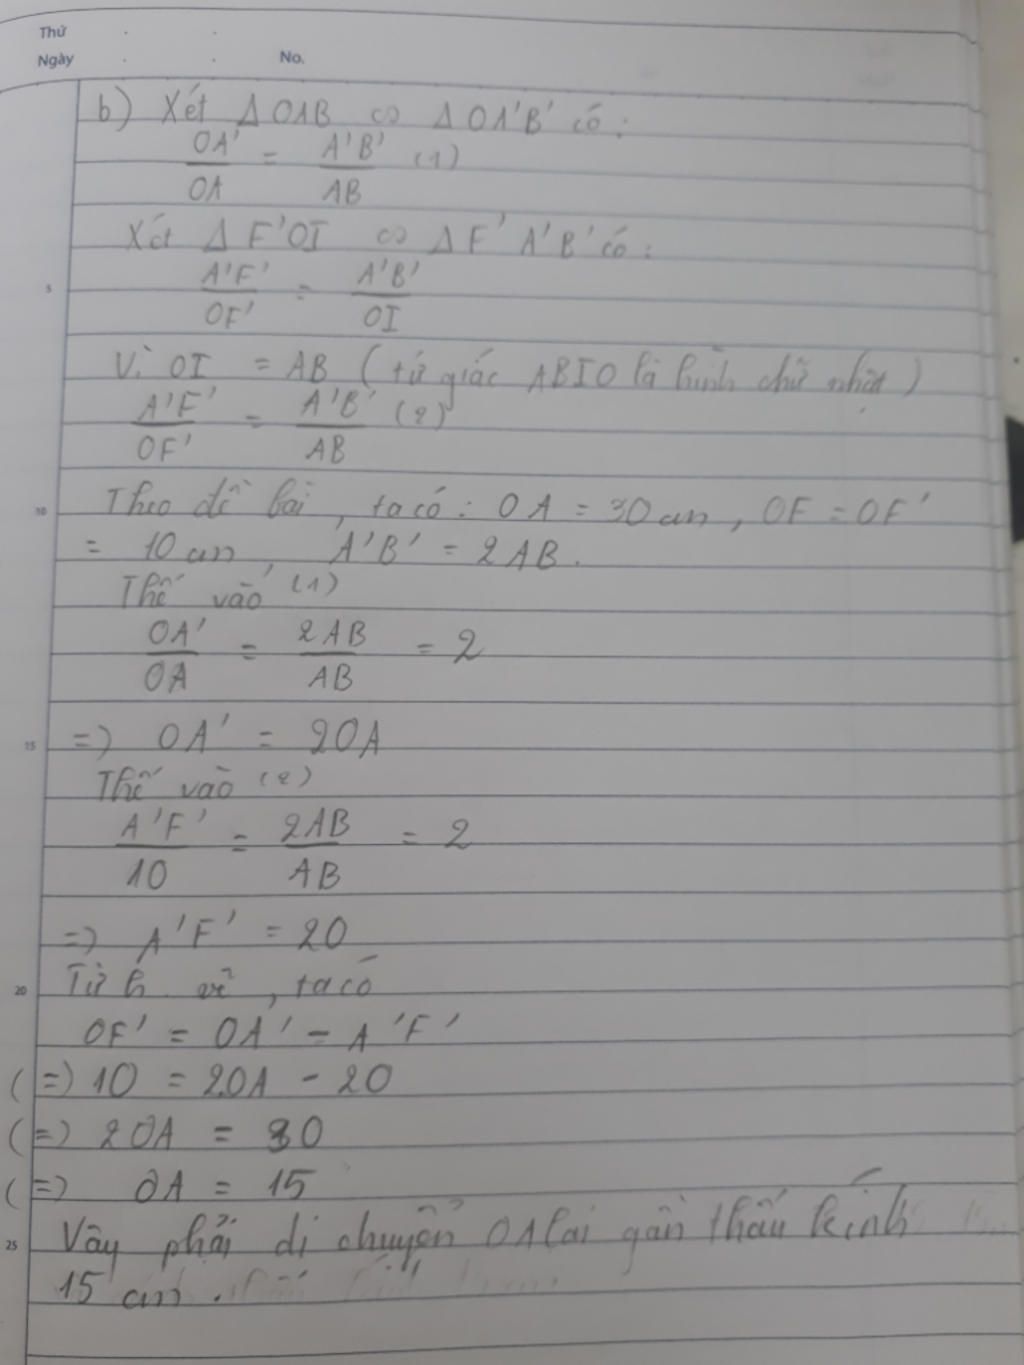 Thứ
Ngày No.
b) Xét Δ OAB ∽ Δ OA'B' có :
OA'/OA = A'B'/AB (1)
Xét Δ F'OI ∽ Δ F'A'B' có :
5
A'F'/OF' = A'B'/OI
Vì OI = AB ( tứ giác ABIO là hình chữ nhật )
A'F'/OF' = A'B'/AB (2)
10
Theo đề bài , ta có : OA = 30 cm , OF = OF'
= 10 cm , A'B' = 2AB .
Thế vào (1)
OA'/OA = 2AB/AB = 2
15
=) OA' = 2OA
Thế vào (2)
A'F'/10 = 2AB/AB = 2
=) A'F' = 20
20
Từ h. vẽ , ta có
OF' = OA' - A'F'
(=) 10 = 2OA - 20
(=) 2OA = 30
(=) OA = 15
25
Vậy phải di chuyển OA lại gần thấu kính
15 cm .